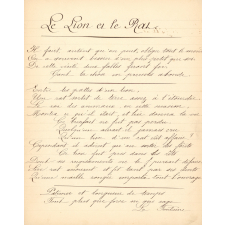 Le Lion et le Rat.
Il faut, autant qu'on peut, obliger tout le monde
On a souvent besoin d'un plus petit que soi
De cette vérité deux fables feront foi
Tant la chose en preuves abonde
Entre les pattes d'un lion
Un rat sortit de terre assez à l'étourdie
Le roi des animaux en cette occasion
Montra ce qu'il était, et lui donna la vie
Ce bienfait ne fut pas perdu
Quelqu'un aurait-il jamais cru
Qu'un lion d'un rat eût affaire
Cependant il advint qu'au sortir des forêts
Ce lion fut pris dans des rets
Dont ses rugissements ne le purent défaire
Sire rat accourut et fit tant par ses dents
Qu'une maille rongée emporta tout l'ouvrage
Patience et longueur de temps
Font plus que force ni que rage
La Fontaine